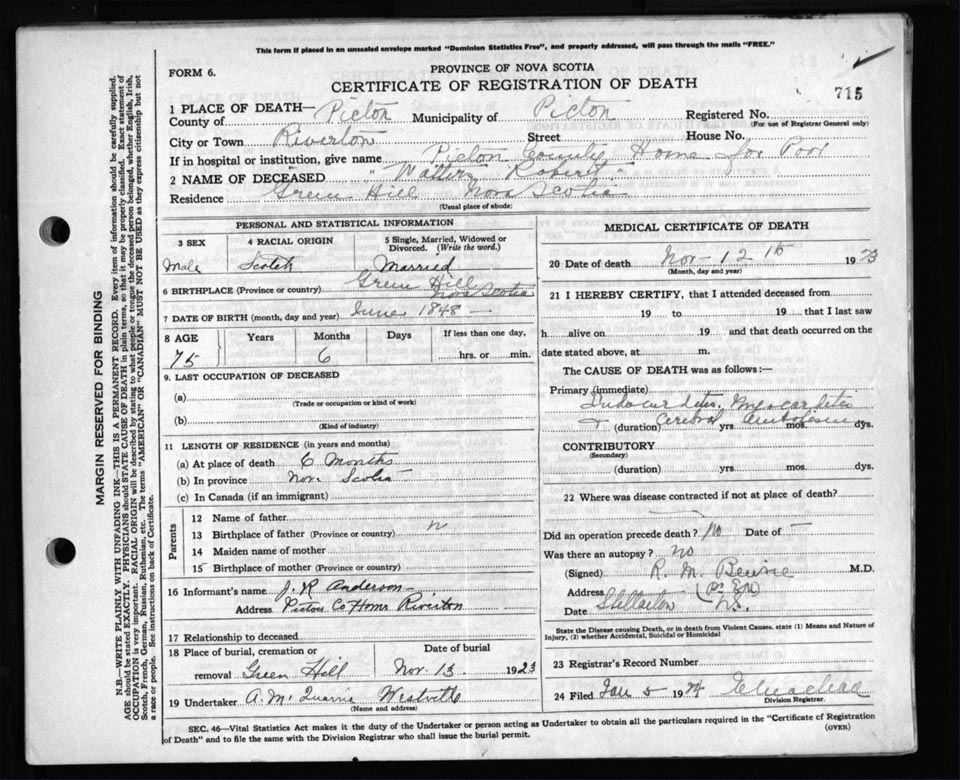 This form if placed in an unsealed envelope marked "Dominion Statistics Free", and properly addressed, will pass through the mails "FREE."
FORM 6.
PROVINCE OF NOVA SCOTIA
CERTIFICATE OF REGISTRATION OF DEATH
715
1 PLACE OF DEATH—
County of Pictou Municipality of Pictou Registered No.
(For use of Registrar General only)
City or Town Riverton Street House No.
If in hospital or institution, give name Pictou County Home for Poor
2 NAME OF DECEASED "Watters Robert"
Residence Green Hill Nova Scotia
(Usual place of abode)
PERSONAL AND STATISTICAL INFORMATION
3 SEX 4 RACIAL ORIGIN 5 Single, Married, Widowed or Divorced. (Write the word.)
Male Scotch Married
6 BIRTHPLACE (Province or country) Green Hill Nova Scotia
7 DATE OF BIRTH (month, day and year) June 1848 —
8 AGE Years Months Days If less than one day,
75 6 hrs. or min.
9. LAST OCCUPATION OF DECEASED
(a)
(Trade or occupation or kind of work)
(b)
(Kind of industry)
11 LENGTH OF RESIDENCE (in years and months)
(a) At place of death 6 Months
(b) In province Nov. Scotia
(c) In Canada (if an immigrant)
Parents
12 Name of father
13 Birthplace of father (Province or country)
14 Maiden name of mother
15 Birthplace of mother (Province or country)
16 Informant's name J. R Anderson
Address Pictou Co Home Riverton
17 Relationship to deceased
18 Place of burial, cremation or removal Date of burial
Green Hill Nov. 13 1923
19 Undertaker A. Mc Quarrie Westville
(Name and address)
MEDICAL CERTIFICATE OF DEATH
20 Date of death Nov - 12 th 1923
(Month, day and year)
21 I HEREBY CERTIFY, that I attended deceased from
19 to 19 that I last saw
h alive on 19 and that death occurred on the
date stated above, at m.
The CAUSE OF DEATH was as follows:—
Primary (immediate)
Endocarditis, Myocarditis
& Cerebral Embolism
(duration) yrs mos. dys.
CONTRIBUTORY
(Secondary)
(duration) yrs mos. dys.
22 Where was disease contracted if not at place of death?
Did an operation precede death? No Date of —
Was there an autopsy? no
(Signed) R. M. M.D.
Address
Date Stellarton N.S.
State the Disease causing Death, or in death from Violent Causes, state (1) Means and Nature of Injury, (2) whether Accidental, Suicidal or Homicidal
23 Registrar's Record Number
24 Filed Jan 5 1924
Division Registrar.
SEC. 46—Vital Statistics Act makes it the duty of the Undertaker or person acting as Undertaker to obtain all the particulars required in the "Certificate of Registration
of Death" and to file the same with the Division Registrar who shall issue the burial permit.
(OVER)
MARGIN RESERVED FOR BINDING
N.B.—WRITE PLAINLY WITH UNFADING INK—THIS IS A PERMANENT RECORD. Every item of information should be carefully supplied.
AGE should be stated EXACTLY. PHYSICIANS should STATE CAUSE OF DEATH in plain terms, so that it may be properly classified. Exact statement of
OCCUPATION is very important. RACIAL ORIGIN will be described by stating to what people or tongue the deceased person belonged, whether English, Irish,
Scotch, French, German, Russian, Ruthenian, etc. The terms "AMERICAN" OR "CANADIAN" MUST NOT BE USED as they express citizenship but not
a race or people. See instructions on back of Certificate.